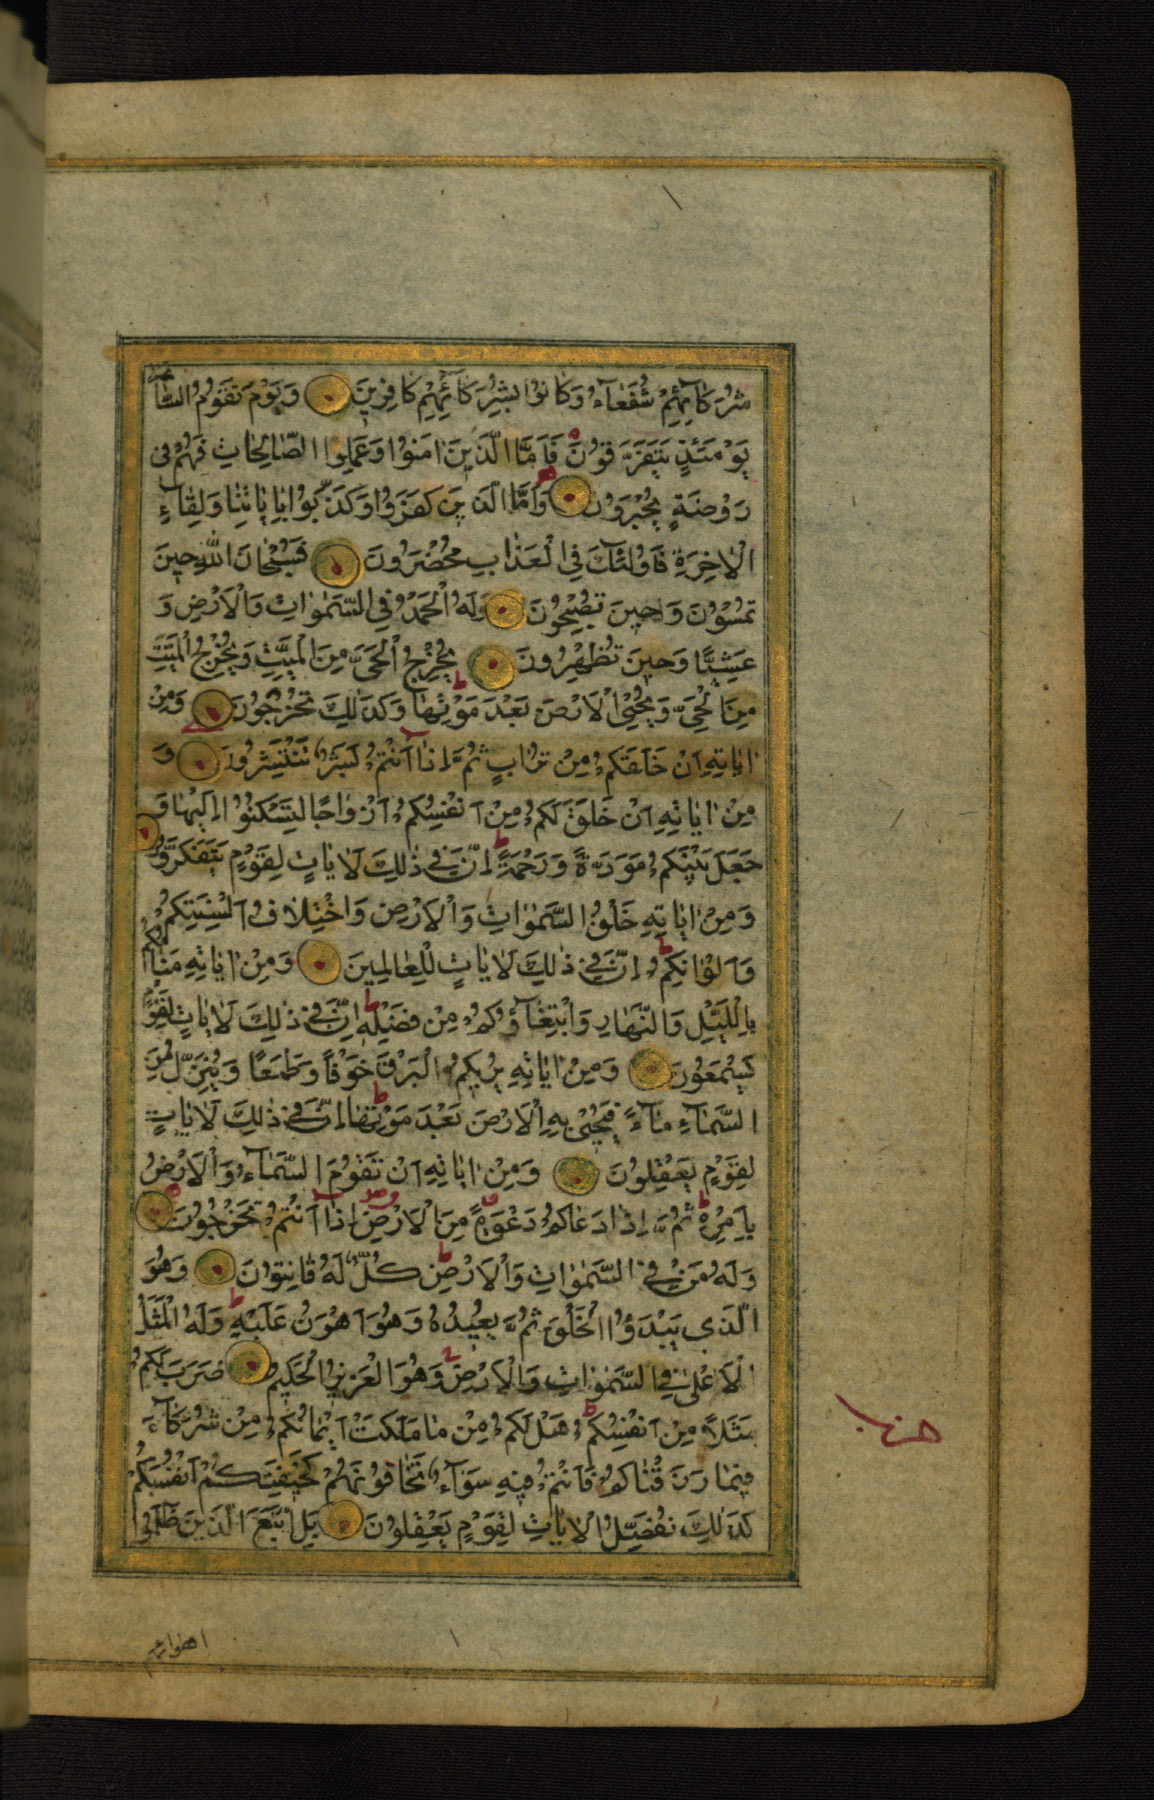 شُرَكَآئِهِمْ شُفَعَآءُ وَكَانُوا بِشُرَكَآئِهِمْ كَافِرِينَ وَيَوْمَ تَقُومُ السَّاعَةُ
يَوْمَئِذٍ يَتَفَرَّقُونَ فَاَمَّا الَّذِينَ اٰمَنُوا وَعَمِلُوا الصَّالِحَاتِ فَهُمْ فِى
رَوْضَةٍ يُحْبَرُونَ وَاَمَّا الَّذِينَ كَفَرُوا وَكَذَّبُوا بِاٰيَاتِنَا وَلِقَآءِ
الْاٰخِرَةِ فَاُولٰئِكَ فِى الْعَذَابِ مُحْضَرُونَ فَسُبْحَانَ اللّٰهِ حِينَ
تُمْسُونَ وَحِينَ تُصْبِحُونَ وَلَهُ الْحَمْدُ فِى السَّمٰوَاتِ وَالْاَرْضِ وَ
عَشِيًّا وَحِينَ تُظْهِرُونَ يُخْرِجُ الْحَىَّ مِنَ الْمَيِّتِ وَيُخْرِجُ الْمَيِّتَ
مِنَ الْحَىِّ وَيُحْيِى الْاَرْضَ بَعْدَ مَوْتِهَا وَكَذٰلِكَ تُخْرَجُونَ وَمِنْ
اٰيَاتِهِ اَنْ خَلَقَكُمْ مِنْ تُرَابٍ ثُمَّ اِذَا اَنْتُمْ بَشَرٌ تَنْتَشِرُونَ وَ
مِنْ اٰيَاتِهِ اَنْ خَلَقَ لَكُمْ مِنْ اَنْفُسِكُمْ اَزْوَاجًا لِتَسْكُنُوا اِلَيْهَا وَ
جَعَلَ بَيْنَكُمْ مَوَدَّةً وَرَحْمَةً اِنَّ فِى ذٰلِكَ لَاٰيَاتٍ لِقَوْمٍ يَتَفَكَّرُونَ
وَمِنْ اٰيَاتِهِ خَلْقُ السَّمٰوَاتِ وَالْاَرْضِ وَاخْتِلَافُ اَلْسِنَتِكُمْ
وَاَلْوَانِكُمْ اِنَّ فِى ذٰلِكَ لَاٰيَاتٍ لِلْعَالِمِينَ وَمِنْ اٰيَاتِهِ مَنَامُكُمْ
بِاللَّيْلِ وَالنَّهَارِ وَابْتِغَآؤُكُمْ مِنْ فَضْلِهِ اِنَّ فِى ذٰلِكَ لَاٰيَاتٍ لِقَوْمٍ
يَسْمَعُونَ وَمِنْ اٰيَاتِهِ يُرِيكُمُ الْبَرْقَ خَوْفًا وَطَمَعًا وَيُنَزِّلُ مِنَ
السَّمَآءِ مَآءً فَيُحْيِى بِهِ الْاَرْضَ بَعْدَ مَوْتِهَا اِنَّ فِى ذٰلِكَ لَاٰيَاتٍ
لِقَوْمٍ يَعْقِلُونَ وَمِنْ اٰيَاتِهِ اَنْ تَقُومَ السَّمَآءُ وَالْاَرْضُ
بِاَمْرِهِ ثُمَّ اِذَا دَعَاكُمْ دَعْوَةً مِنَ الْاَرْضِ اِذَا اَنْتُمْ تَخْرُجُونَ
وَلَهُ مَنْ فِى السَّمٰوَاتِ وَالْاَرْضِ كُلٌّ لَهُ قَانِتُونَ وَهُوَ
الَّذِى يَبْدَؤُا الْخَلْقَ ثُمَّ يُعِيدُهُ وَهُوَ اَهْوَنُ عَلَيْهِ وَلَهُ الْمَثَلُ
الْاَعْلٰى فِى السَّمٰوَاتِ وَالْاَرْضِ وَهُوَ الْعَزِيزُ الْحَكِيمُ ضَرَبَ لَكُمْ
مَثَلًا مِنْ اَنْفُسِكُمْ هَلْ لَكُمْ مِنْ مَا مَلَكَتْ اَيْمَانُكُمْ مِنْ شُرَكَآءَ
فِيمَا رَزَقْنَاكُمْ فَاَنْتُمْ فِيهِ سَوَآءٌ تَخَافُونَهُمْ كَخِيفَتِكُمْ اَنْفُسَكُمْ
كَذٰلِكَ نُفَصِّلُ الْاٰيَاتِ لِقَوْمٍ يَعْقِلُونَ بَلِ اتَّبَعَ الَّذِينَ ظَلَمُوا
اهواءهم
حزب